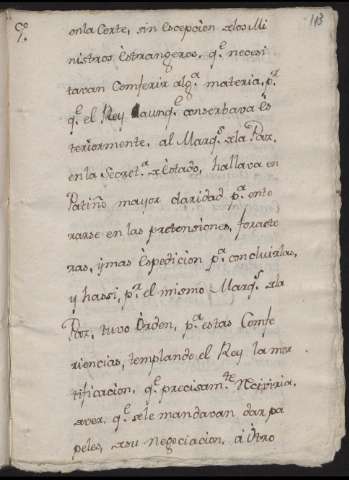 113
9.º
en la Corte, sin Escepcion de los Mi
nistros Estrangeros, q.e necesi
tavan Comferir alg.a materia, p.r
q.e el Rey aunq.e conserbava Es
teriormente, al Marq.s de la Paz,
en la Secret.a de Estado, hallava en
Patiño mayor claridad p.a ente
rarse en las pretensiones, foraste
ras, y mas Espedicion p.a concluirlas,
y hassi, p.r el mismo Marq.s de la
Paz, tuvo Orden, p.a estas Comfe
riencias, templando el Rey la mor
tificacion, q.e precisam.te Reciviria,
de ver, q.e se le mandavan dar pa
peles, de su negociacion, á Otro